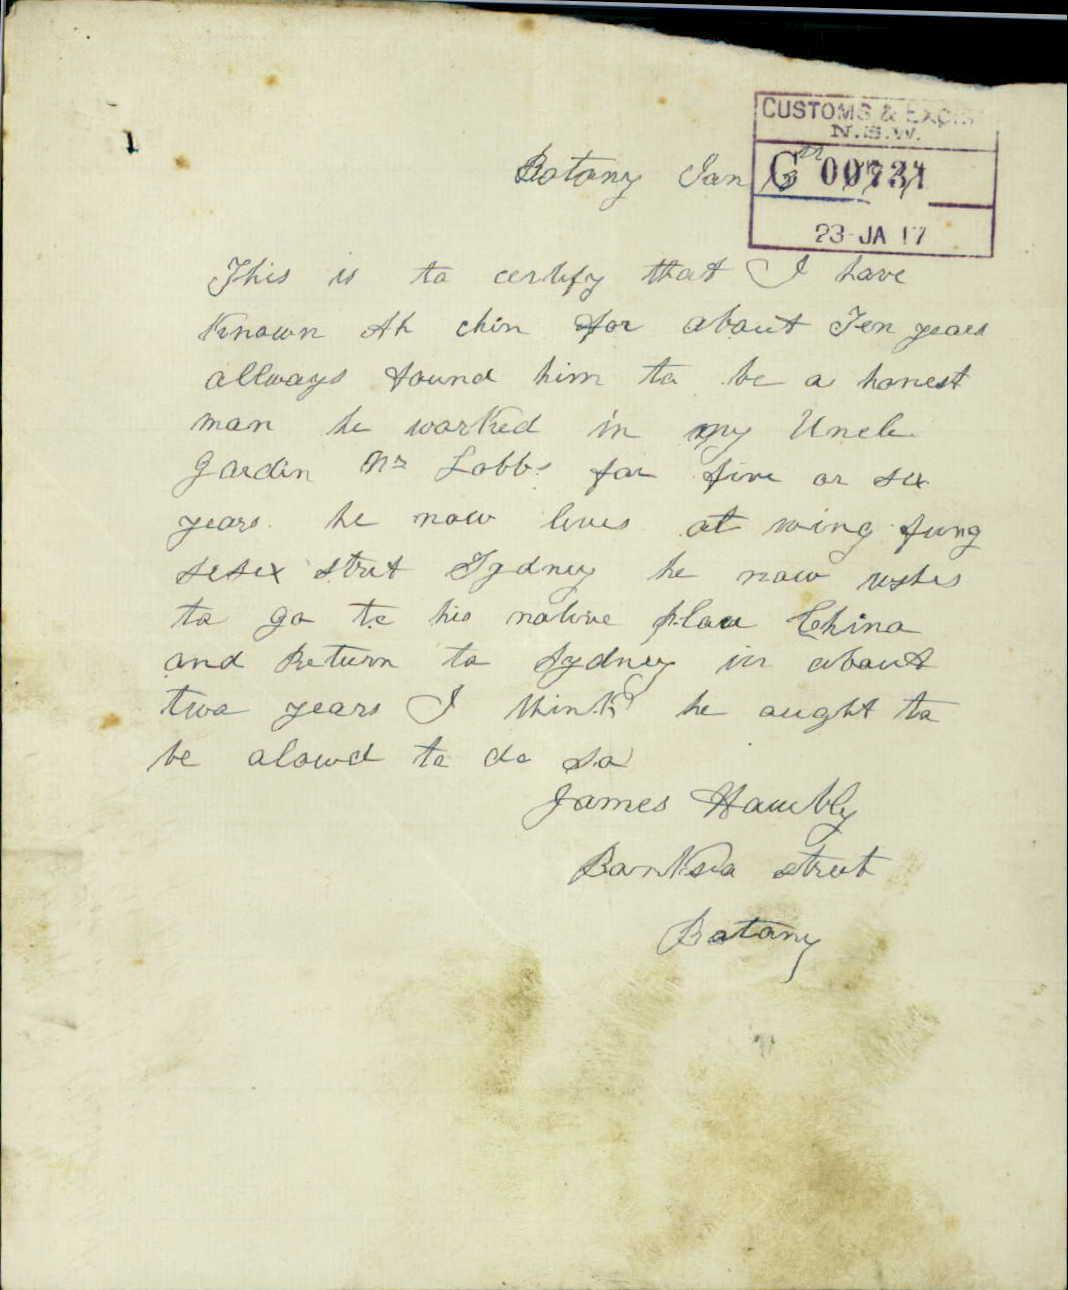 CUSTOMS & EXCISE
N.S.W.
Botany Jan
G 00731
23 JA 17
This is to certify that I have
Known Ah chin for about Ten years
allways found him to be a honest
man he worked in my Uncle
Gardin Mr Lobbs for five or six
years he now lives at wing fung
sesex street Sydney he now wshes
to go to his native place China
and Return to Sydney in about
two years I think he aught to
be alowd to do so
James Hambly
Banksia street
Botany